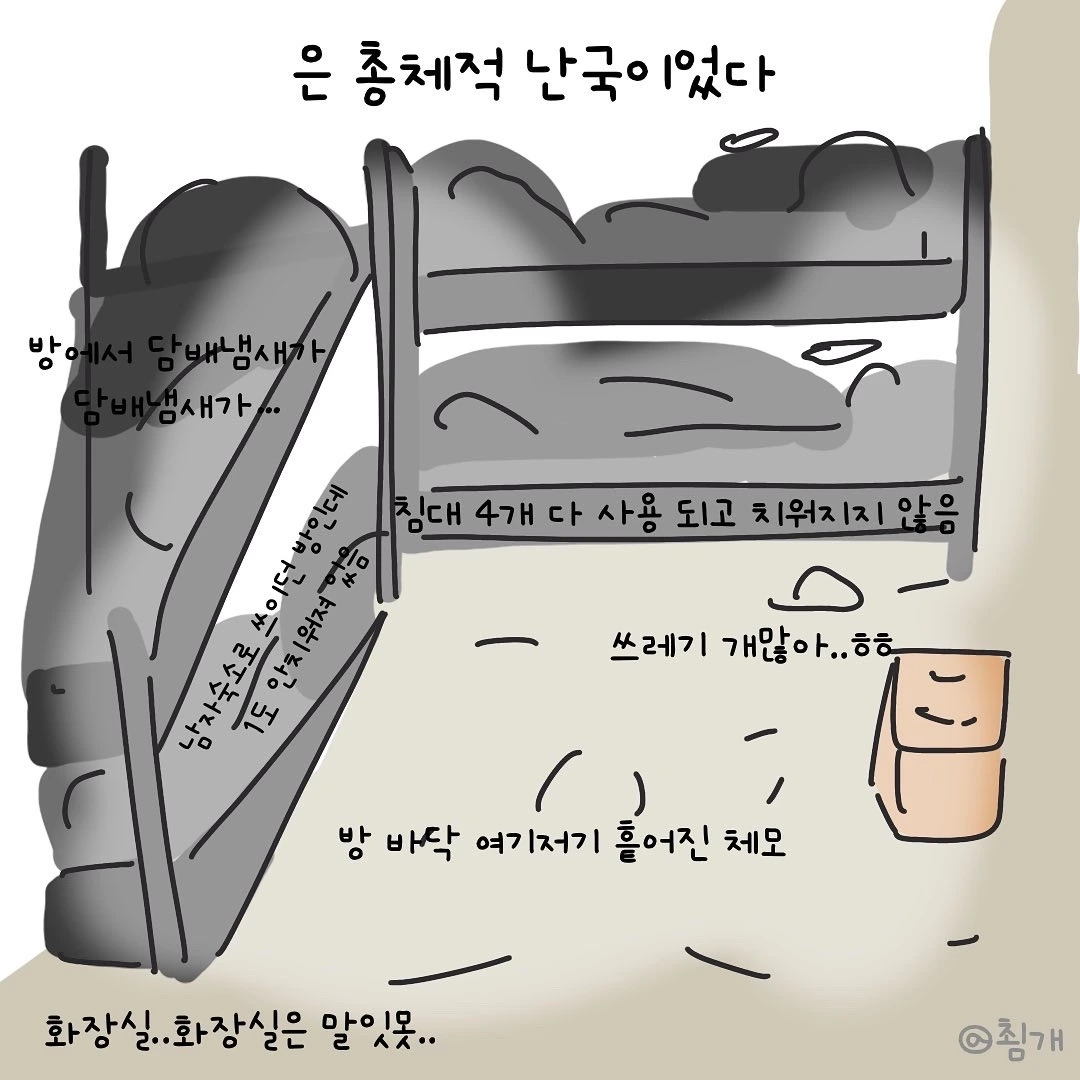 은 총체적 난국이었다
방에서 담배냄새가
담배냄새가...
침대 4개 다 사용 되고 치워지지 않음
남자숙소로 쓰이던 방인데
1도 안치워져 있음
쓰레기 개많아..ㅎㅎ
방 바닥 여기저기 흩어진 체모
화장실..화장실은 말잇못..
@침개